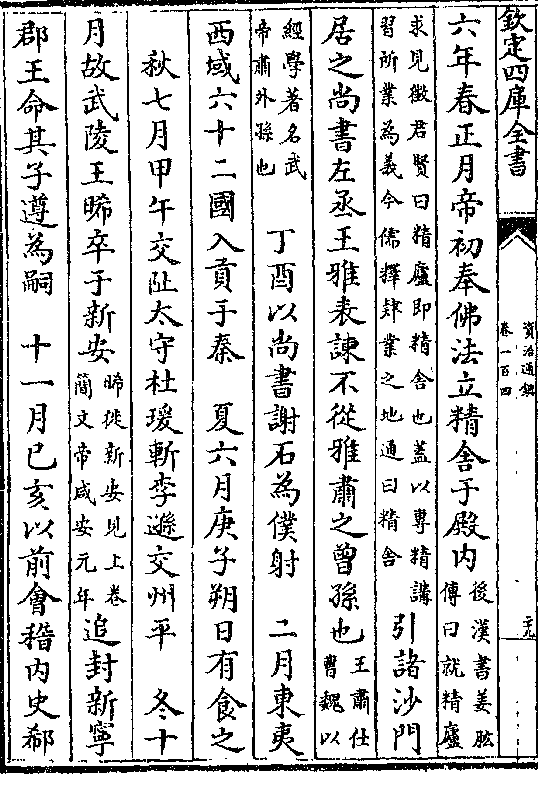 欽定四庫全書
資治通鑑
卷一百四
六年春正月帝初奉佛法立精舍于殿内
後漢書姜肱
傳曰就精廬
求見徵君賢曰精廬即精舍也盖以專精講
習所業為義今儒釋肄業之地通曰精舍
引諸沙門
居之尚書左丞王雅表諫不從雅肅之曾孫也
王肅仕
曹魏以
經學著名武
帝肅外孫也
丁酉以尚書謝石為僕射　二月東夷
西域六十二國入貢于秦　夏六月庚子朔日有食之
秋七月甲午交阯太守杜瑗斬李遜交州平　冬十
月故武陵王晞卒于新安
晞徙新安見上卷
簡文帝咸安元年
追封新寧
郡王命其子遵為嗣　十一月己亥以前會稽内史郗